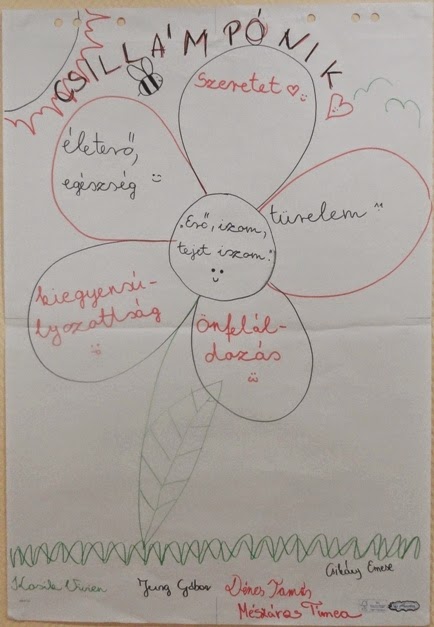 CSILLÁMPÓNIK
Szeretet
életerő,
egészség
türelem
"Erő, izom,
tejet iszom."
kiegyensú-
lyozottság
önfelál-
dozás
Csikány Emese
Kosik Vivien
Jung Gábor
Dénes Tamás
Mészáros Tímea